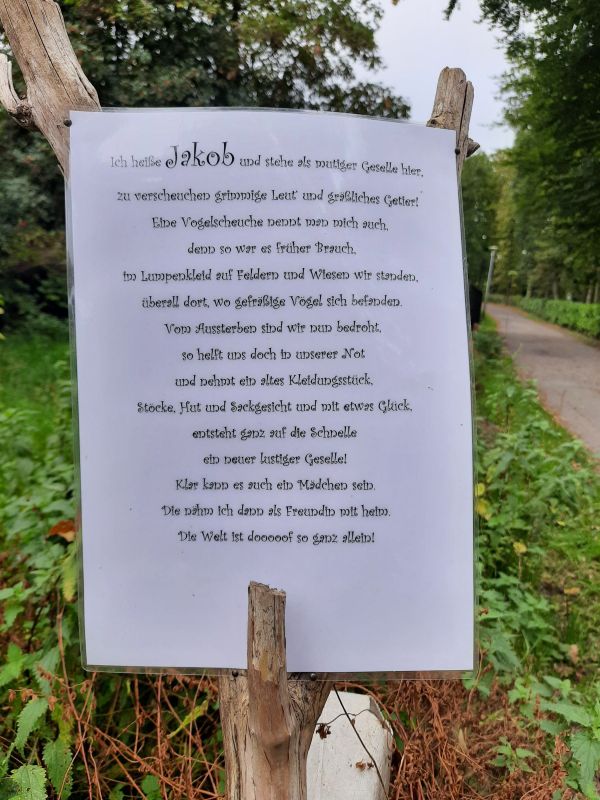 Ich heiße Jakob und stehe als mutiger Geselle hier,
zu verscheuchen grimmige Leut' und gräßliches Getier!
Eine Vogelscheuche nennt man mich auch,
denn so war es früher Brauch,
im Lumpenkleid auf Feldern und Wiesen wir standen,
überall dort, wo gefräßige Vögel sich befanden.
Vom Aussterben sind wir nun bedroht,
so helft uns doch in unserer Not
und nehmt ein altes Kleidungsstück,
Stöcke, Hut und Sackgesicht und mit etwas Glück,
entsteht ganz auf die Schnelle
ein neuer lustiger Geselle!
Klar kann es auch ein Mädchen sein.
Die nähm ich dann als Freundin mit heim.
Die Welt ist dooooof so ganz allein!